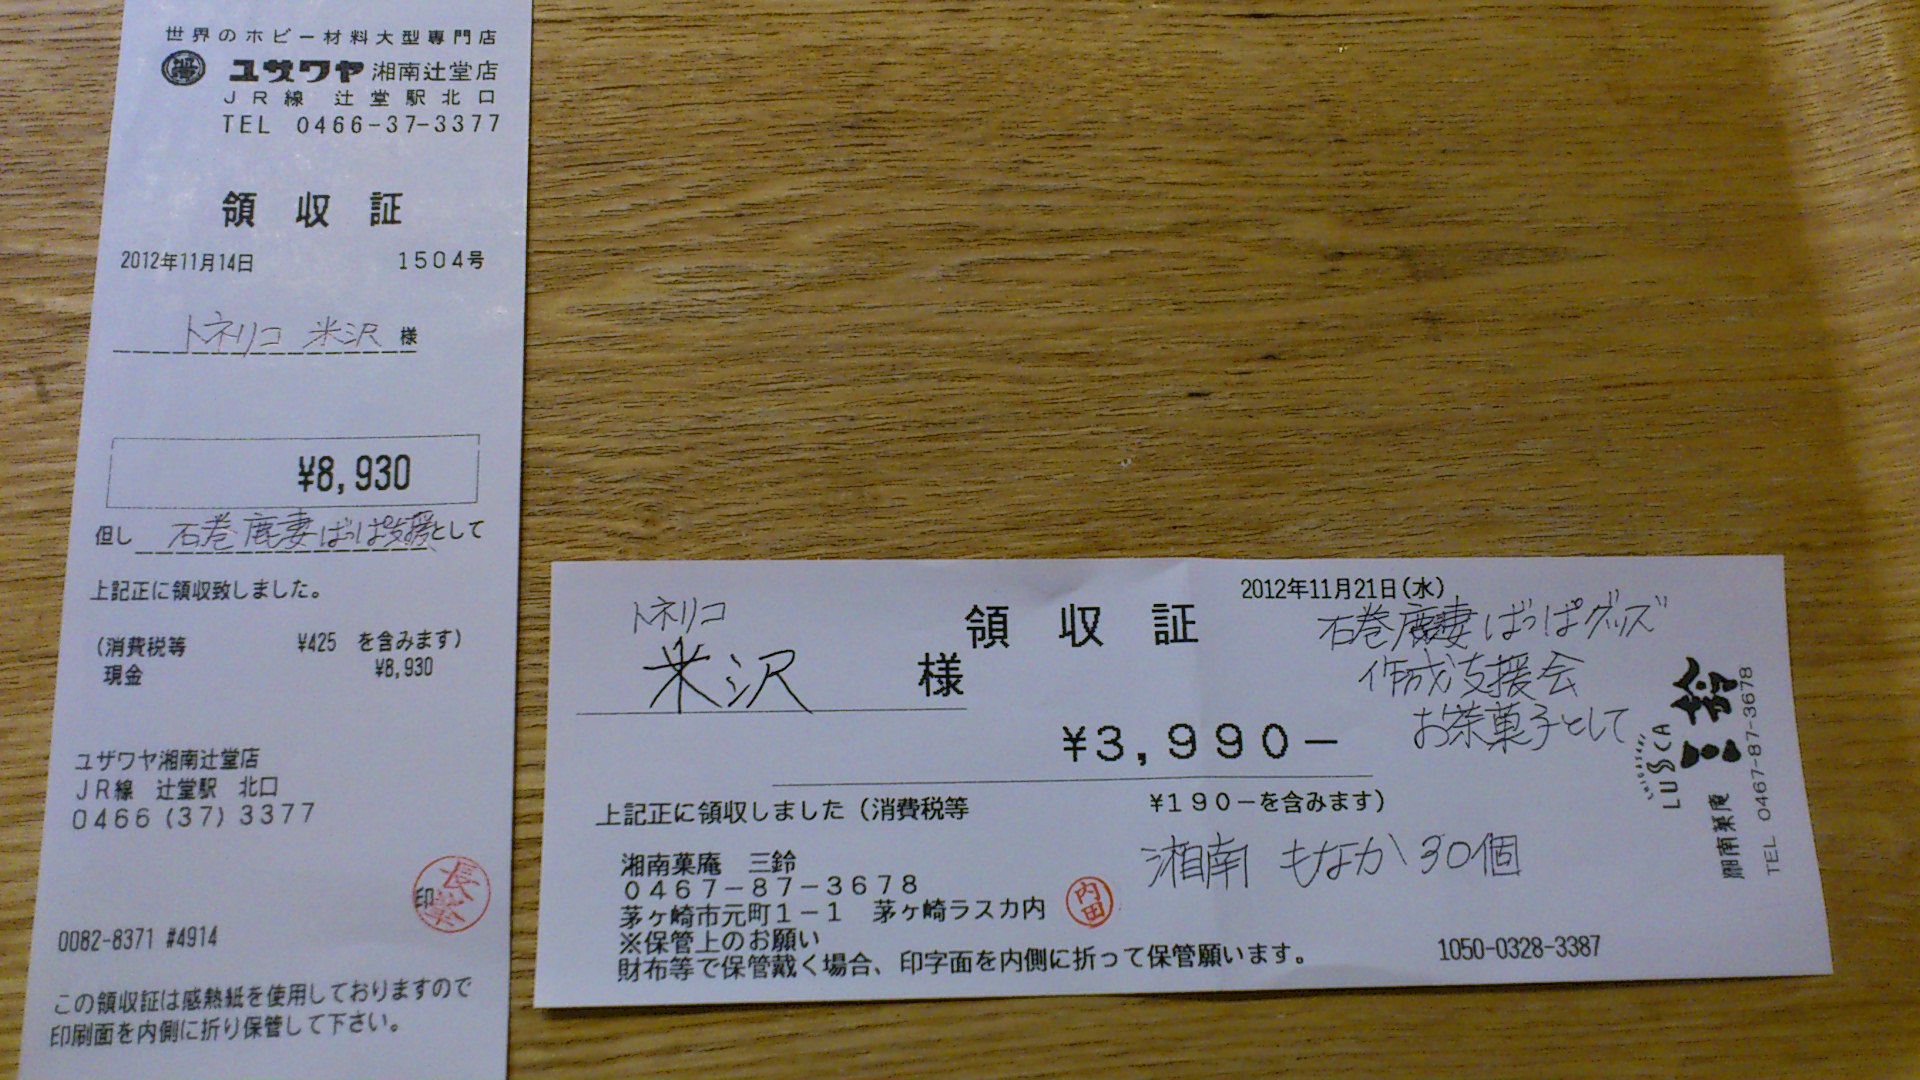 世界のホビー材料大型専門店
ユザワヤ 湘南辻堂店
JR線 辻堂駅北口
TEL 0466-37-3377
領収証
2012年11月14日 1504号
トネリコ 米沢 様
¥8,930
但し 石巻鹿妻ばっぱ支援として
上記正に領収致しました。
(消費税等 ¥425 を含みます)
現金 ¥8,930
ユザワヤ湘南辻堂店
JR線 辻堂駅 北口
0466(37)3377
印
0082-8371 #4914
この領収証は感熱紙を使用しておりますので
印刷面を内側に折り保管して下さい。
2012年11月21日(水)
領収証
トネリコ
米沢 様
石巻鹿妻ばっぱグッズ
作成支援会
お茶菓子として
¥3,990-
上記正に領収しました(消費税等 ¥190-を含みます)
湘南もなか30個
湘南菓庵 三鈴
0467-87-3678
茅ヶ崎市元町1-1 茅ヶ崎ラスカ内
内田
※保管上のお願い
財布等で保管戴く場合、印字面を内側に折って保管願います。
1050-0328-3387
LUSCA
CHIGASAKI
湘南菓庵 三鈴
TEL 0467-87-3678